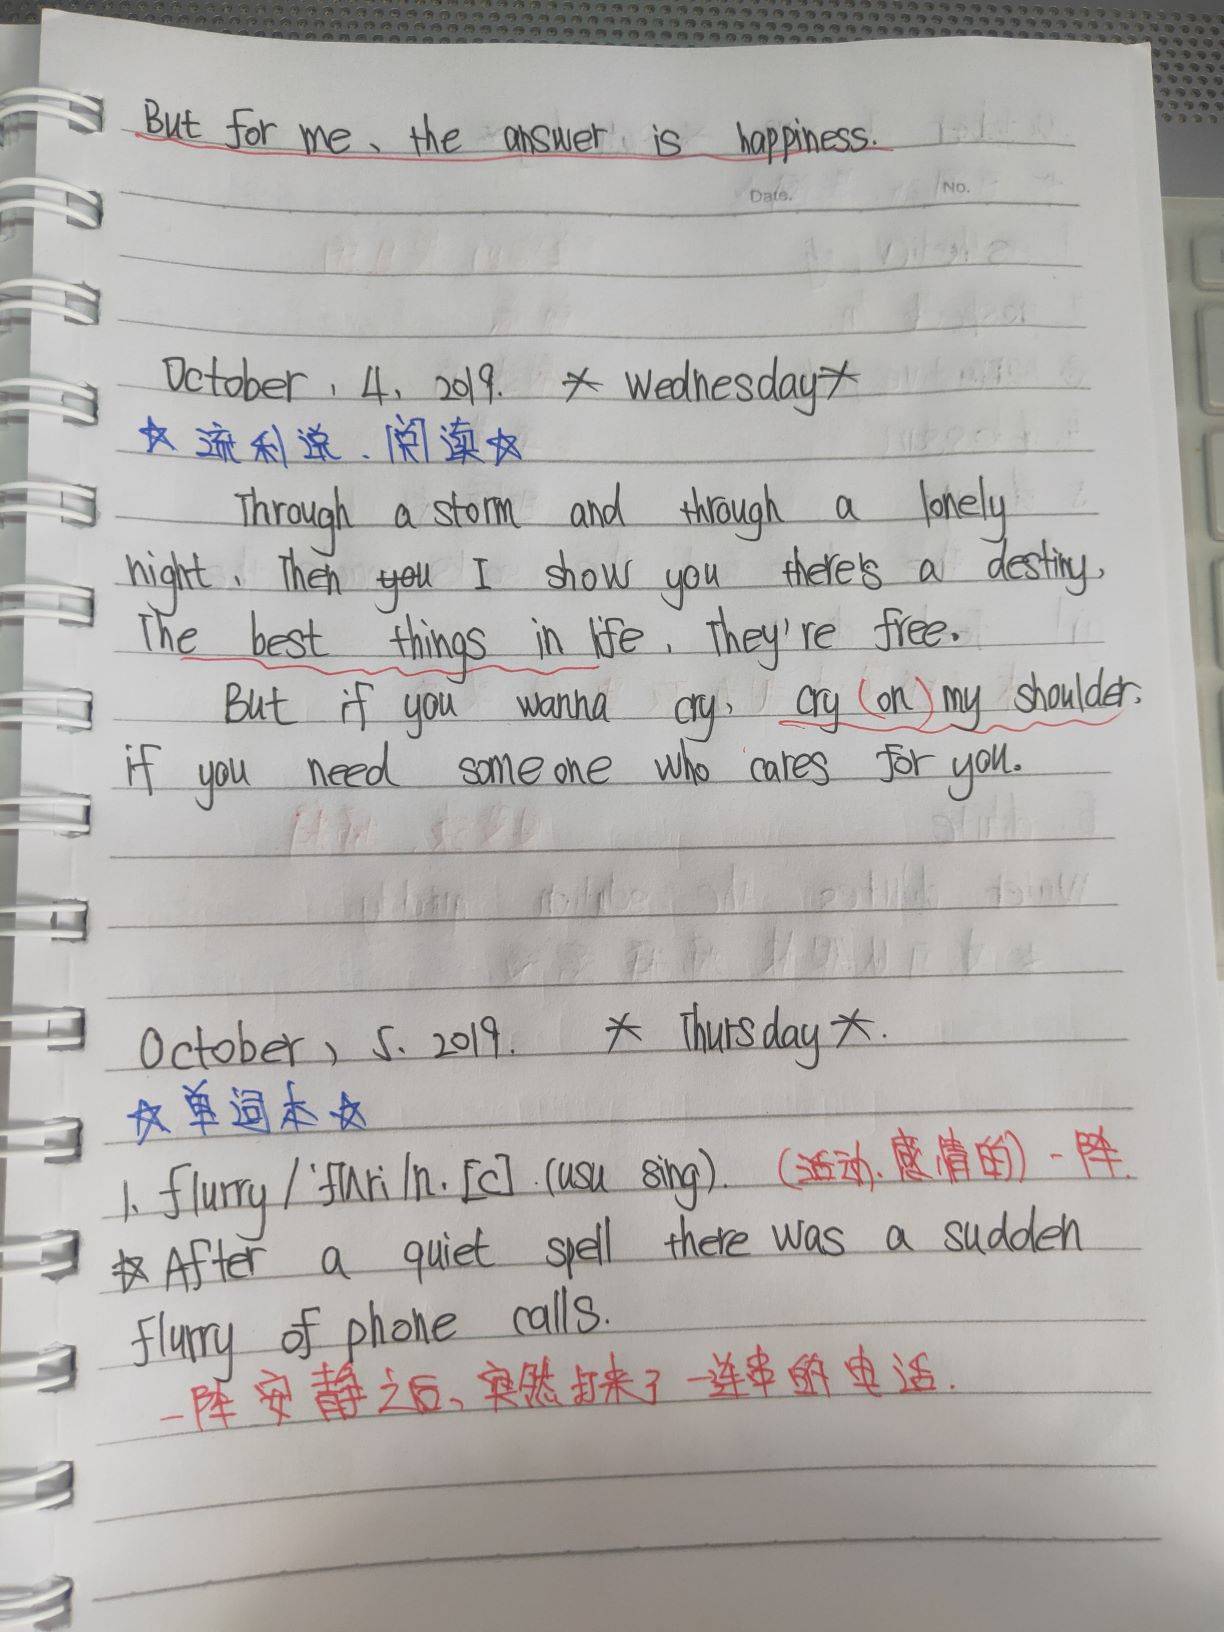 But for me、the answer is happiness.
Date. No.
October, 4, 2019. ☆ Wednesday ☆
☆ 流利说.阅读☆
Through a storm and through a lonely
night, Then you I show you there's a destiny,
The best things in life, They're free.
But if you wanna cry, cry (on) my shoulder,
if you need someone who cares for you.
October, 5. 2019. ☆ Thursday ☆.
☆单词本☆
1. flurry /'flʌri/n. [C] (usu sing). (活动.感情的)一阵.
☆ After a quiet spell there was a sudden
flurry of phone calls.
一阵安静之后、突然打来了一连串的电话.